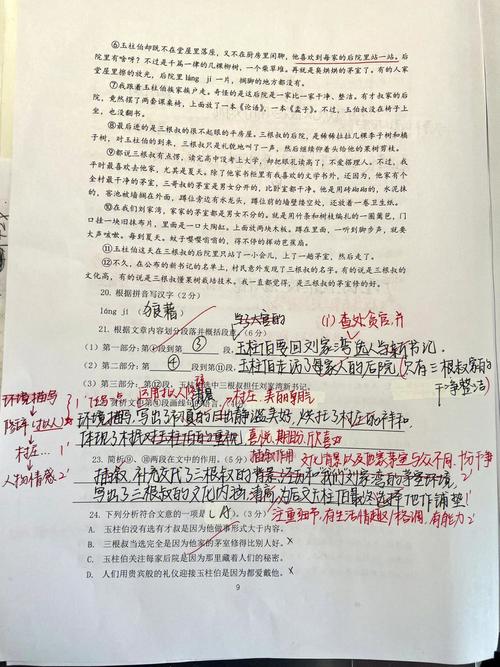 ⑥玉柱伯却既不在堂屋里落座，又不在厨房里闲聊，他喜欢到每家的后院里站一站。后
院里有啥呀？不过是千篇一律的几棵柳树，一个柴草垛。再就是臭烘烘的茅室了。有的人家
堂屋里擦的放光，后院里 láng jí 一片，拥脚的地方都没有。
⑦我跟着玉柱伯挨家挨户走。奇怪的是这后院是一家比一家干净、整洁。有才叔家的后
院，竟然摆了两套课桌椅，上面放了一本《论语》，一本《孟子》。不过，玉柏伯没在椅子上
坐，也没翻书。
⑧最后进的是三根叔的很不起眼的平房屋。三根叔的后院，是稀稀拉拉几棵李子树和橘
子树，对玉柱伯的到来，三根叔只是礼貌地叫了一声，然后继续仰着头给他的果树剪枝。
⑨都说三根叔有点愣，读完高中没考上大学，却把眼礼读高了，不爱搭理人。不过，我
平时最喜欢去他家，尤其是夏天。除了他家书柜里有我喜欢的文学书外，还因为，他家有个
全村最干净的茅室，三哥叔的茅室是男女分开的，比卧室都干净。他是用砖砌的，水泥抹
的。茗池被墙搁在外面，蹲位旁边有水龙头，蹲位前的墙壁缕空处，还放着一卷卫生纸。
⑩在我们刘家湾，家家的茅室都是男女不分的。就是用竹条和树枝编扎的一圈篱笆，门
口挂一块旧抹布片，里面是一口大陶缸。上面放两块木板。蹲在里面，一听到脚步声，就要
大声咳嗽。每到夏天。蚊子嘤嘤嗡嗡的，得不停的挥动芭蕉扇。
⑪玉柱伯这天在三根叔的后院里只站了一小会儿，上了一趟茅室，然后走了。
⑫不久，在公布的新书记的名单上，村民意外发现了三根叔的名字。有的说是三根叔的
文化高，有的说是三根叔懂果树栽培技术。我一直都觉得，是三根叔的茅室修的好。
20. 根据拼音写汉字（2 分）
láng jí（狼藉）
21. 根据文章内容划分段落并概括段意。
(1) 查处贪官，并
（1）第一部分：第①段到第③段，玉柱伯要回刘家湾选人当新书记.
（2）第二部分：第④段到第 段，玉柱伯走访了每家人的后院（只有三根叔家的
干净整洁）
（3）第三部分：第⑫段，村庄中三根叔担任刘家湾新书记。
环境描写
修辞（拟人）
村庄… 1'
人物情感 2'
环境描写，写出了不真的日出静谧美好，烘托了村庄的祥和
体现了村民对玉柱伯的重视，喜悦，期盼，欣喜
23. 简析⑨、⑩两段在文中的作用。
插叙作用
插叙，补充交代了三根叔的背景经历和我们刘家湾的茅室环境，
写出了三根叔的文化内涵，清高，为后文玉柱伯最后选择他作铺垫
注重细节，有生活情趣与格调，有能力 2'
24. 下列分析符合文意的一项是（A）。（3 分）
A. 玉柱伯没有选有才叔是因为他做事形式大于内容。
B. 三根叔当选完全是因为他家的茅室修得比别人好。×
C. 玉柱伯关注每家后院是因为那里藏着人们的秘密。
D. 人们用贵宾般的礼仪迎接玉柱伯是因为都爱戴他。×
9